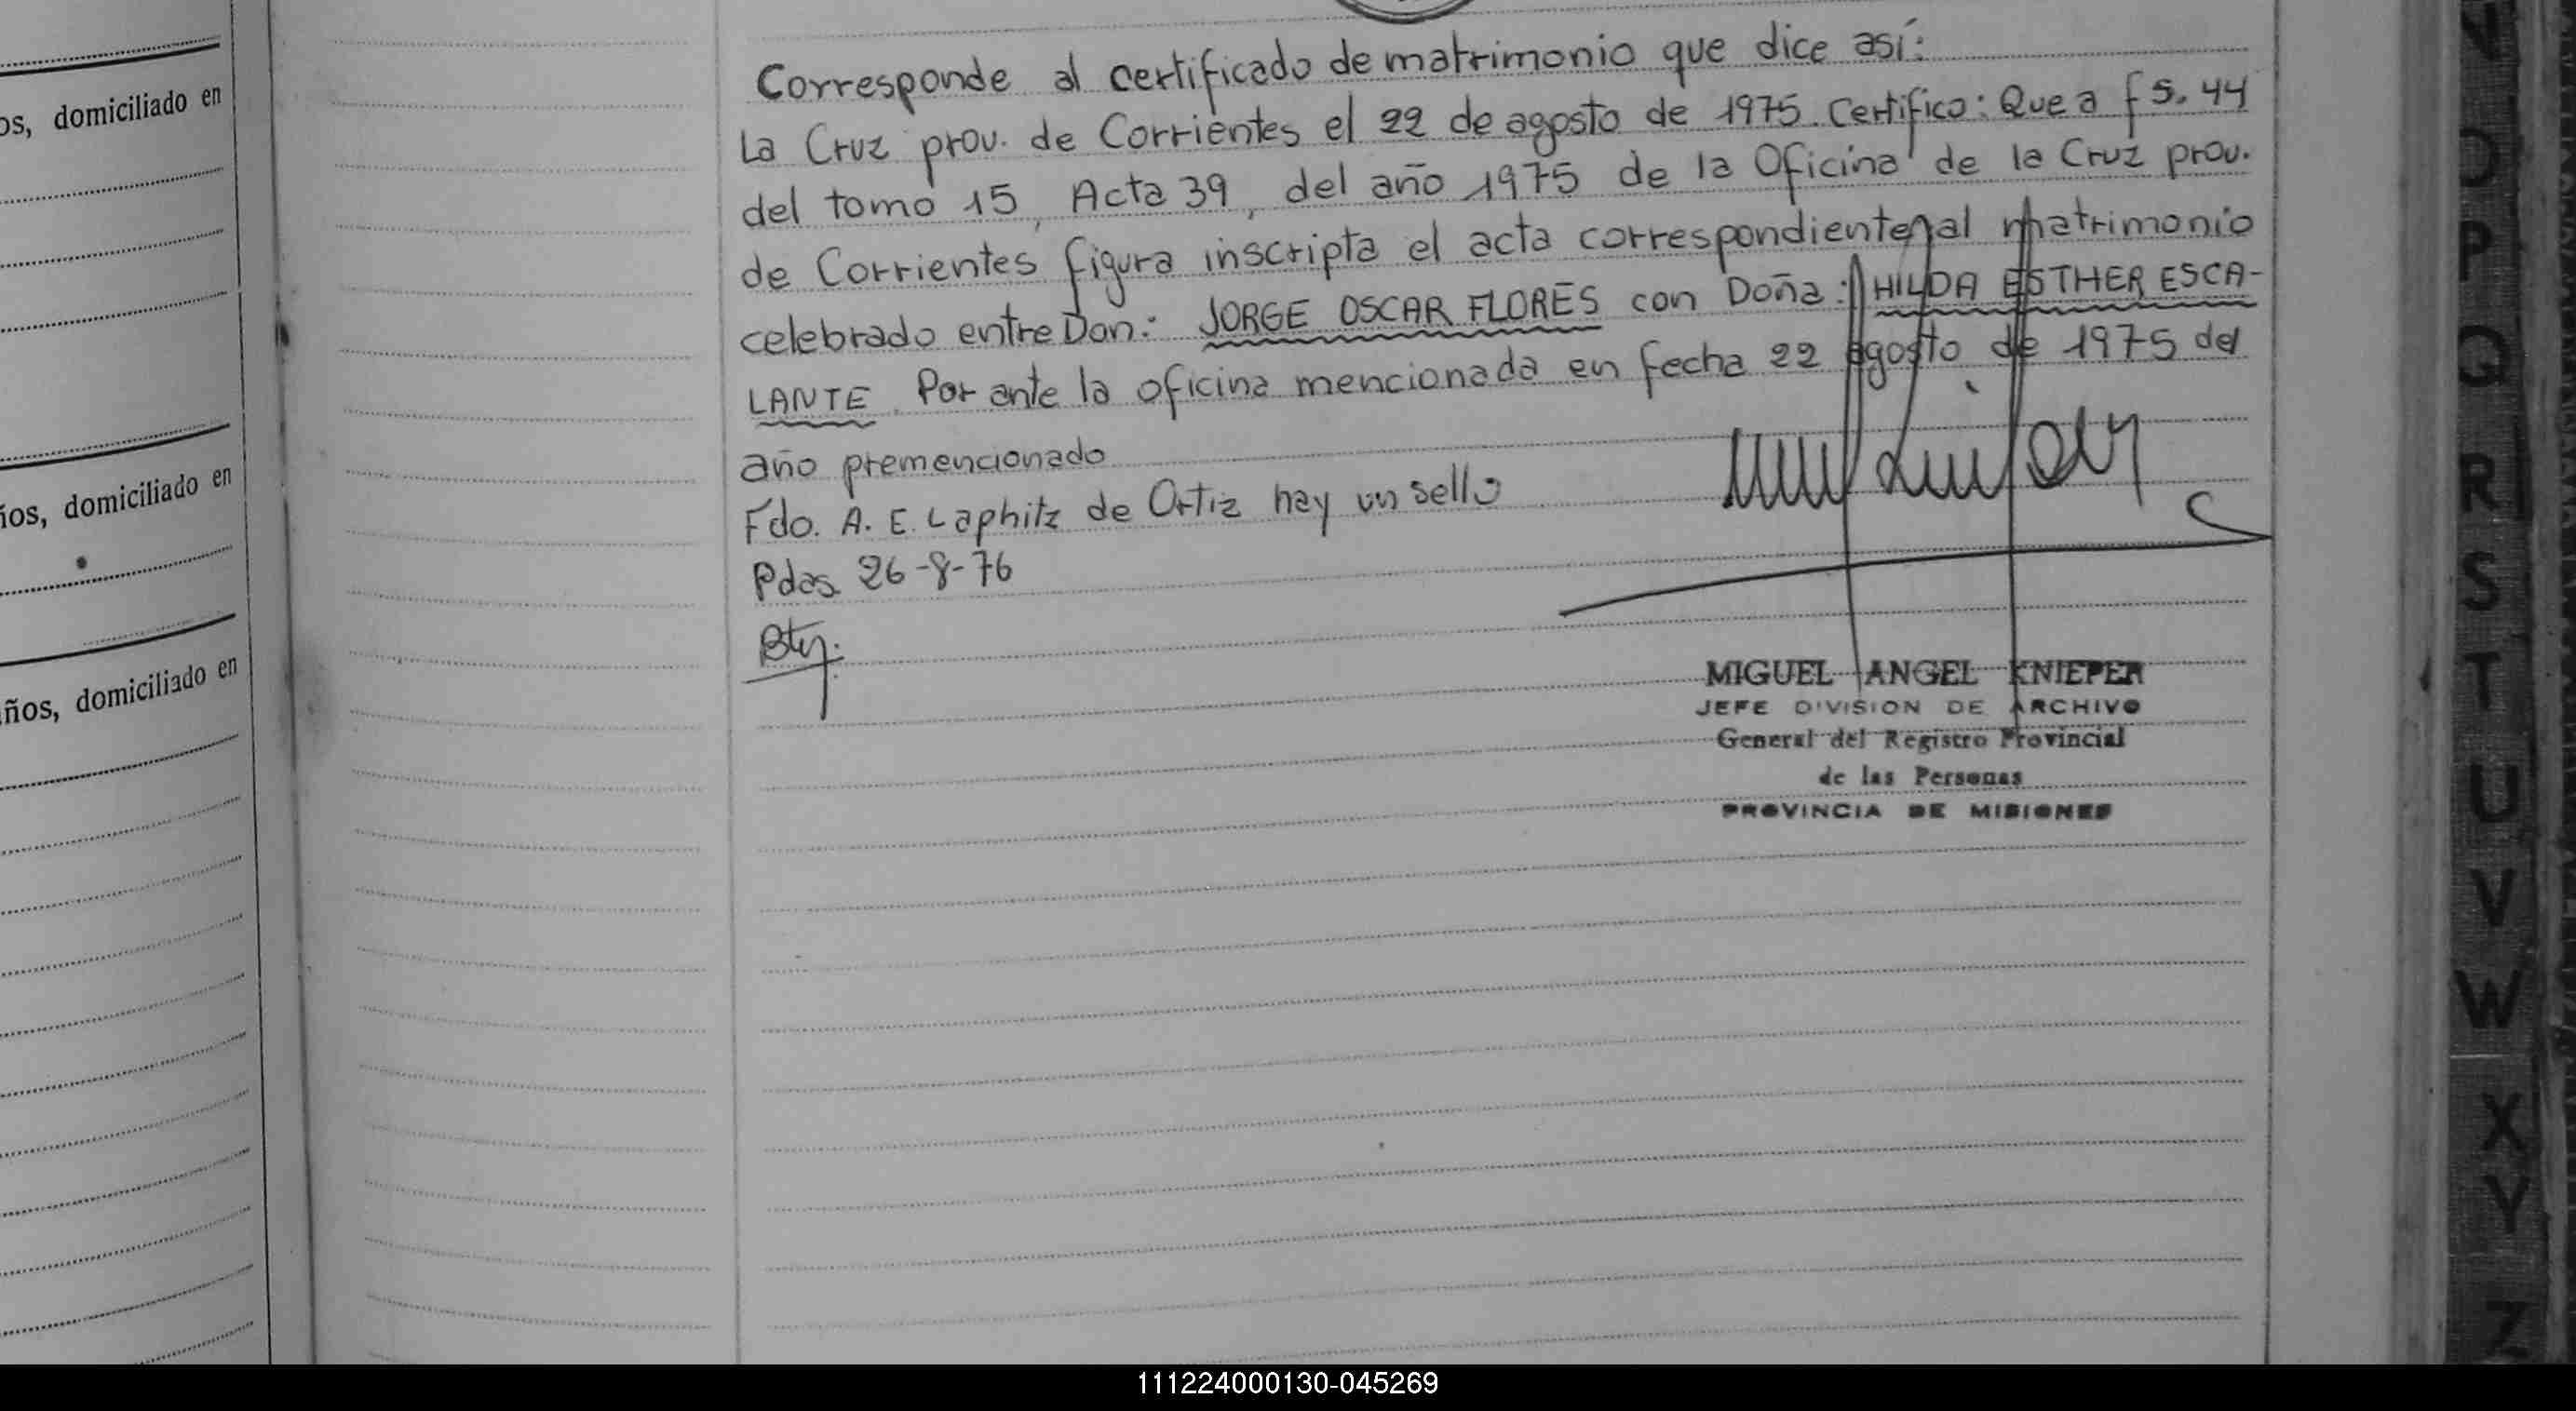 os, domiciliado en
ños, domiciliado en
ños, domiciliado en
Corresponde al certificado de matrimonio que dice así:
La Cruz prov. de Corrientes el 22 de agosto de 1975. Certifico: Que a fs. 44
del tomo 15, Acta 39, del año 1975 de la Oficina de la Cruz prov.
de Corrientes figura inscripta el acta correspondiente al matrimonio
celebrado entre Don: JORGE OSCAR FLORES con Doña: HILDA ESTHER ESCA-
LANTE. Por ante la oficina mencionada en fecha 22 agosto de 1975 del
año premencionado
Fdo. A. E. Laphitz de Ortiz hay un sello
Pdas 26-8-76
MIGUEL ANGEL KNIEPER
JEFE DIVISION DE ARCHIVO
General del Registro Provincial
de las Personas
PROVINCIA DE MISIONES
N
O
P
Q
R
S
T
U
V
W
X
Y
Z
111224000130-045269